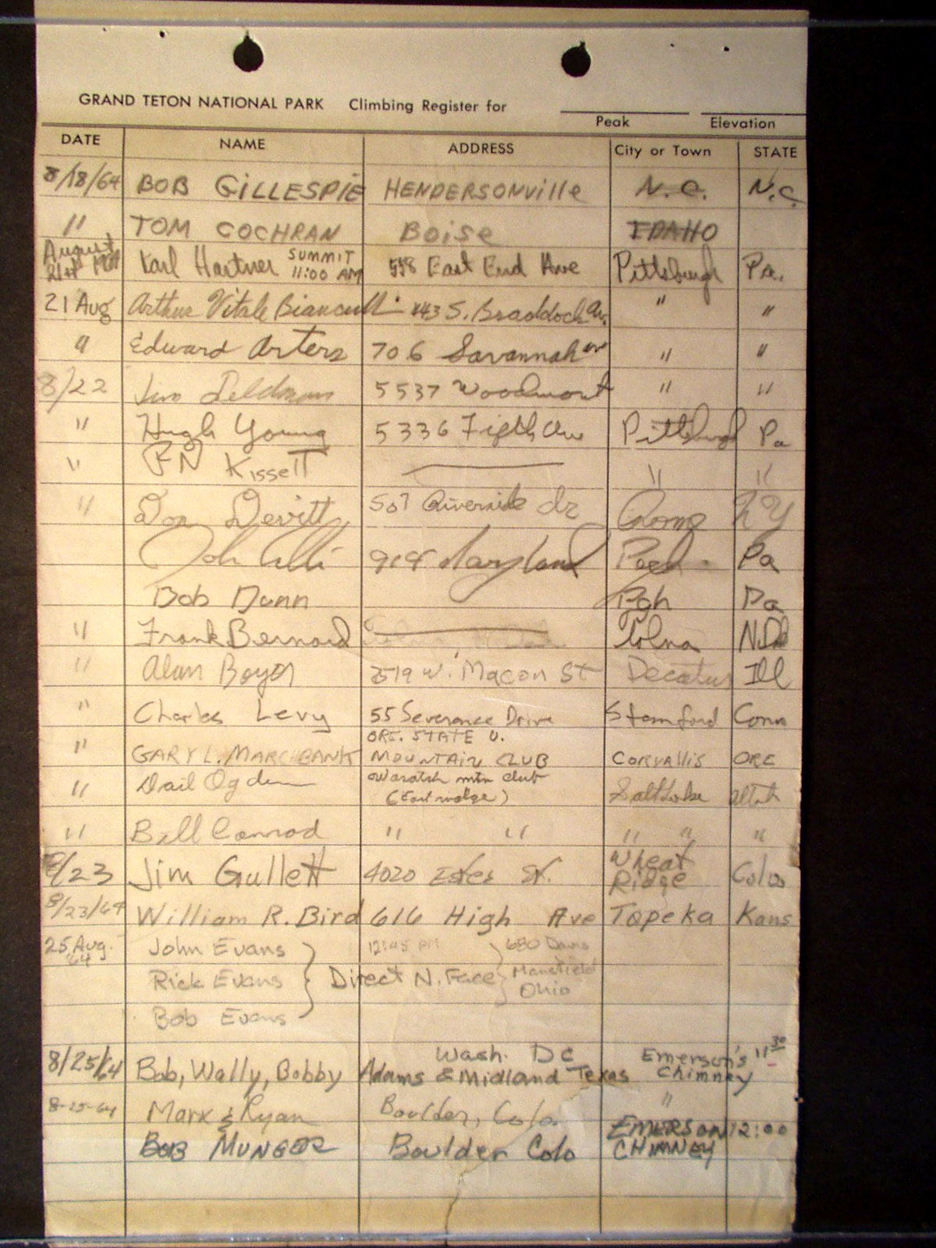 GRAND TETON NATIONAL PARK Climbing Register for
Peak Elevation
DATE NAME ADDRESS City or Town STATE
8/18/64 BOB GILLESPIE HENDERSONVIlle N.C. N.C.
" TOM COCHRAN BOISE IDAHO
August 21st Karl Hartner SUMMIT 11:00 AM 558 East End Ave Pittsburgh Pa.
21 Aug Arthur Vitale 443 S. Braddock Av. " "
" Edward Arters 706 Savannah av " "
8/22 Jim Feldman 5537 Woodmont " "
" Hugh Young 5336 Fifth Ave Pittsburgh Pa
" Kissell " "
" Don Devitt 507 Riverside dr Rome NY
John 914 Maryland Pa
Bob Dunn Pgh Pa
" Frank Bernard Tolna N.D.
" Alan Boyer 2519 W. Macon St Decatur Ill
" Charles Levy 55 Severance Drive Stamford Conn
" GARY L. MARCHBANK ORE. STATE U. MOUNTAIN CLUB CORVALLIS ORE
" Dail Ogden Wasatch mtn club (East ridge) Salt Lake Utah
" Bill Conrod " " " " "
8/23 Jim Gullett 4020 Estes St. Wheat Ridge Colo
8/23/64 William R. Bird 616 High Ave Topeka Kans
25 Aug. '64 John Evans 12:45 PM 680 Davis
Rick Evans Direct N. Face Mansfield Ohio
Bob Evans
8/25/64 Bob, Wally, Bobby Wash. DC Adams & Midland Texas Emerson's Chimney 11 30
8-25-64 Mark & Ryan Boulder, Colo. "
BOB MUNGER Boulder Colo EMERSON CHIMNEY 12:00